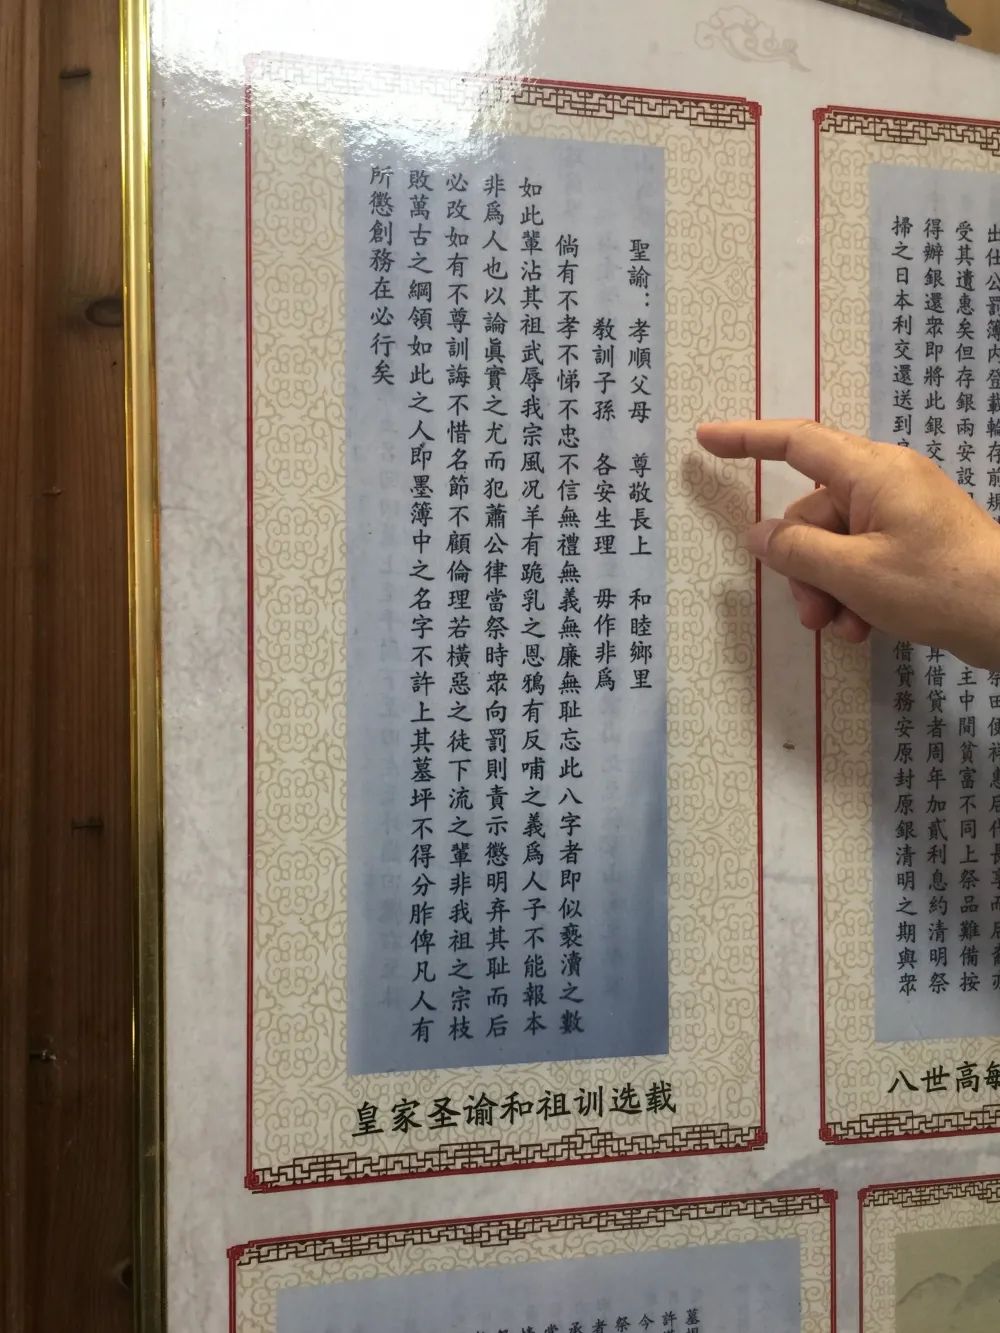 聖諭：孝順父母　尊敬長上　和睦鄉里
教訓子孫　各安生理　毋作非爲
倘有不孝不悌不忠不信無禮無義無廉無耻忘此八字者即似褻瀆之數
如此輩沾其祖武辱我宗風況羊有跪乳之恩鴉有反哺之義爲人子不能報本
非爲人也以論眞實之尤而犯蕭公律當祭時衆向罰則責示懲明弃其耻而后
必改如有不尊訓誨不惜名節不顧倫理若橫惡之徒下流之輩非我祖之宗枝
敗萬古之綱領如此之人即墨簿中之名字不許上其墓坪不得分胙俾凡人有
所懲創務在必行矣
皇家圣谕和祖训选载
出仕公罰簿内登載輪存前規
受其遺惠矣但存銀兩安設
主中間貧富不同上祭品難備按
得辦銀還衆即將此銀交
借貸者周年加貳利息約清明祭
掃之日本利交還送到
借貸務安原封原銀清明之期與衆
八世高敏